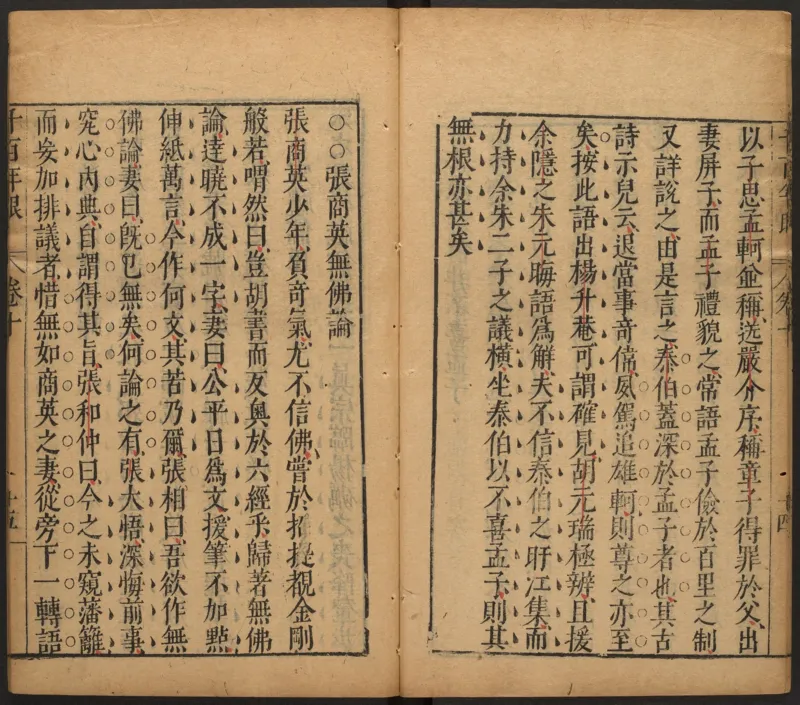 以子思孟軻並稱送嚴介序稱章子得罪於父出
妻屏子而孟子禮貌之常語孟子儉於百里之制
又詳說之由是言之泰伯蓋深於孟子者也其古
詩示兒云退當事奇偉夙駕追雄軻則尊之亦至
矣按此語出楊升菴可謂確見胡元瑞極辨且援
余隱之朱元晦語爲解夫不信泰伯之盱江集而
力持余朱二子之議橫坐泰伯以不喜孟子則其
無根亦甚矣
千百年眼
卷十
十四
○○張商英無佛論
張商英少年負奇氣尤不信佛嘗於招提覩金剛
般若喟然曰豈胡書而反輿於六經乎歸著無佛
論達曉不成一字妻曰公平日爲文援筆不加點
伸紙萬言今作何文其苦乃爾張相曰吾欲作無
佛論妻曰旣已無矣何論之有張大悟深悔前事
究心內典自謂得其旨張和仲曰今之未窺藩籬
而妄加排議者惜無如商英之妻從旁下一轉語
千百年眼
卷十
十五